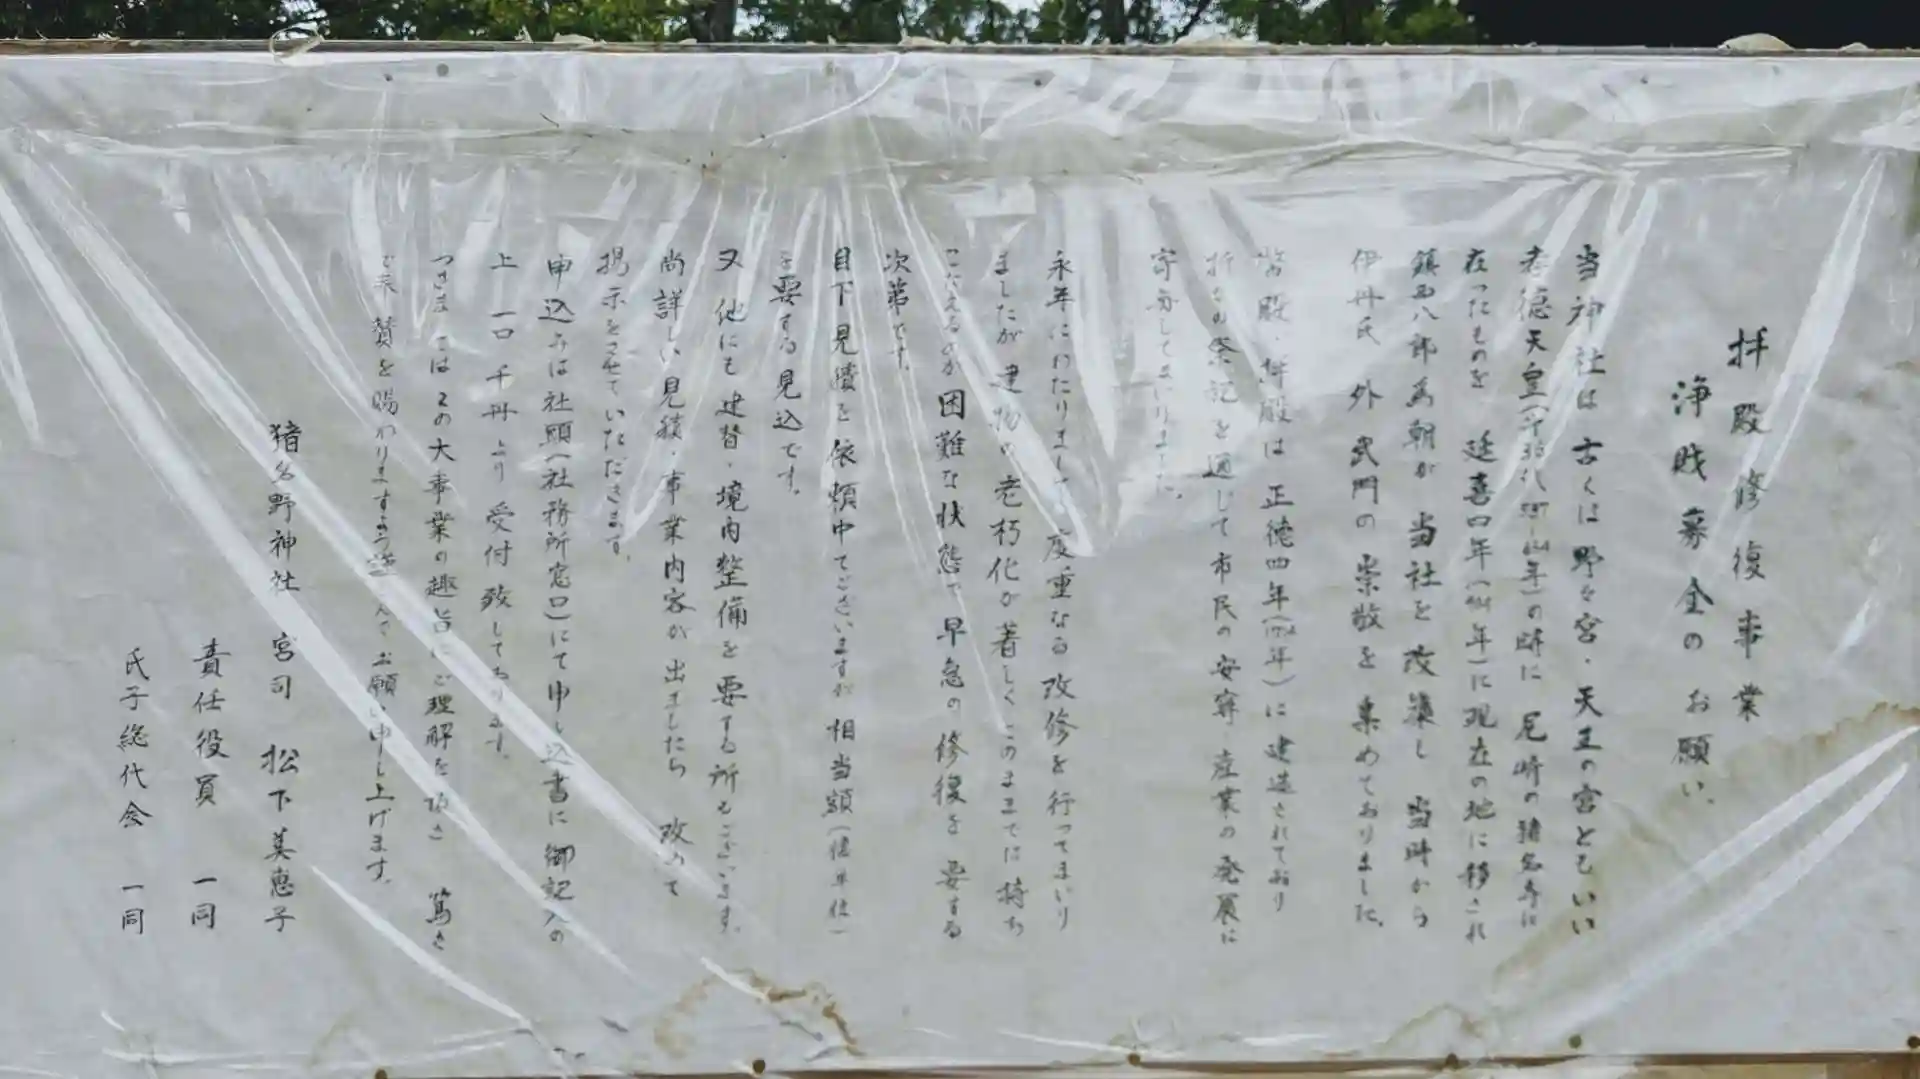 拝殿修復事業
浄財募金のお願い
当神社は古くは野々宮・天王の宮ともいい
孝徳天皇(年)の時に 尼崎の猪名寺に
在ったものを 延喜四年(年)に現在の地に移され
鎮西八郎為朝が 当社を改築し 当時から
伊丹氏 外 武門の崇敬を集めておりました。
幣殿・拝殿は 正徳四年(年)に建造されており
折々の祭祀を通じて市民の安寧 産業の発展に
寄与してまいりました。
永年にわたりまして 度重なる改修を行ってまいり
ましたが 建物の老朽化が著しく このままでは持ち
こたえるのが困難な状態で 早急の修復を 要する
次第です。
目下見積を依頼中でございますが 相当額(億単位)
を要する見込です。
又 他にも建替・境内整備を要する所もございます。
尚詳しい見積・事業内容が出ましたら 改めて
掲示をさせていただきます。
申込みは社頭(社務所窓口)にて申し込書に御記入の
上 一口 千円より受付致しております。
つきましてはこの大事業の趣旨にご理解を頂き 篤き
ご奉賛を賜わりますよう謹んでお願い申し上げます。
猪名野神社 宮司 松下美恵子
責任役員 一同
氏子総代会 一同